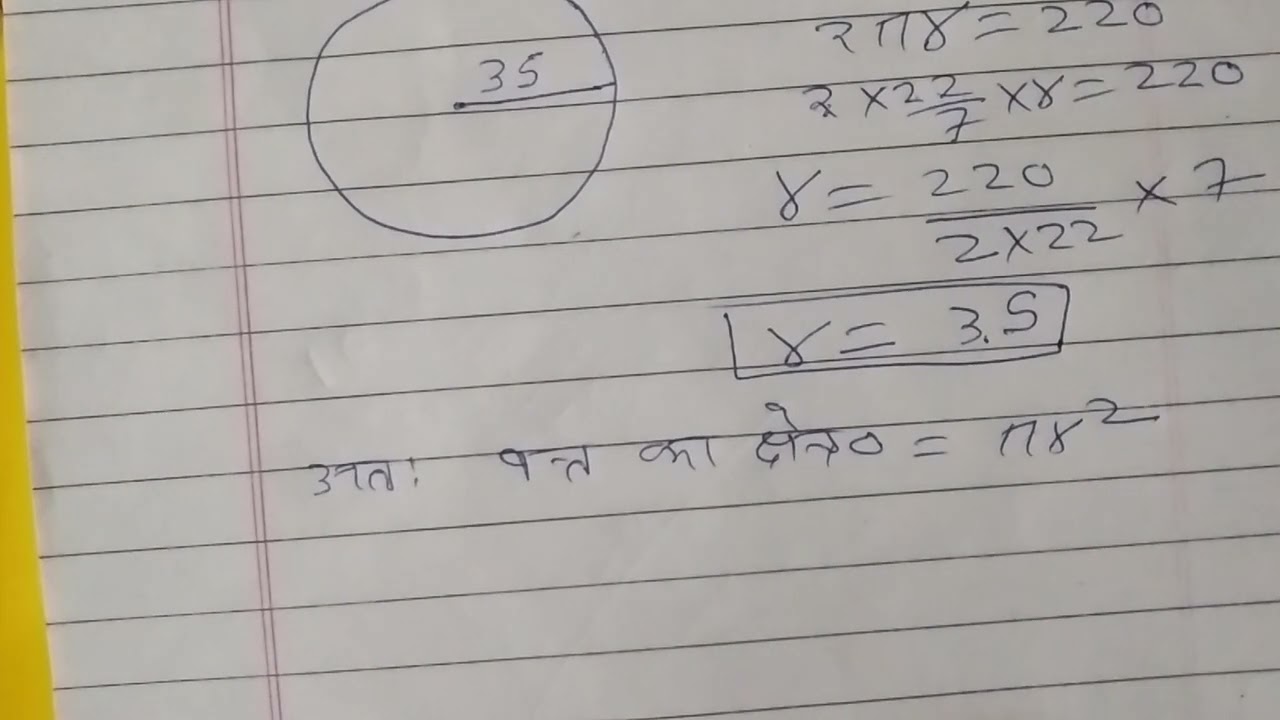 35
2πr = 220
2 × 22/7 × r = 220
r = 220/2×22 × 7
r = 3.5
अतः वृत्त का क्षेत्र० = πr²